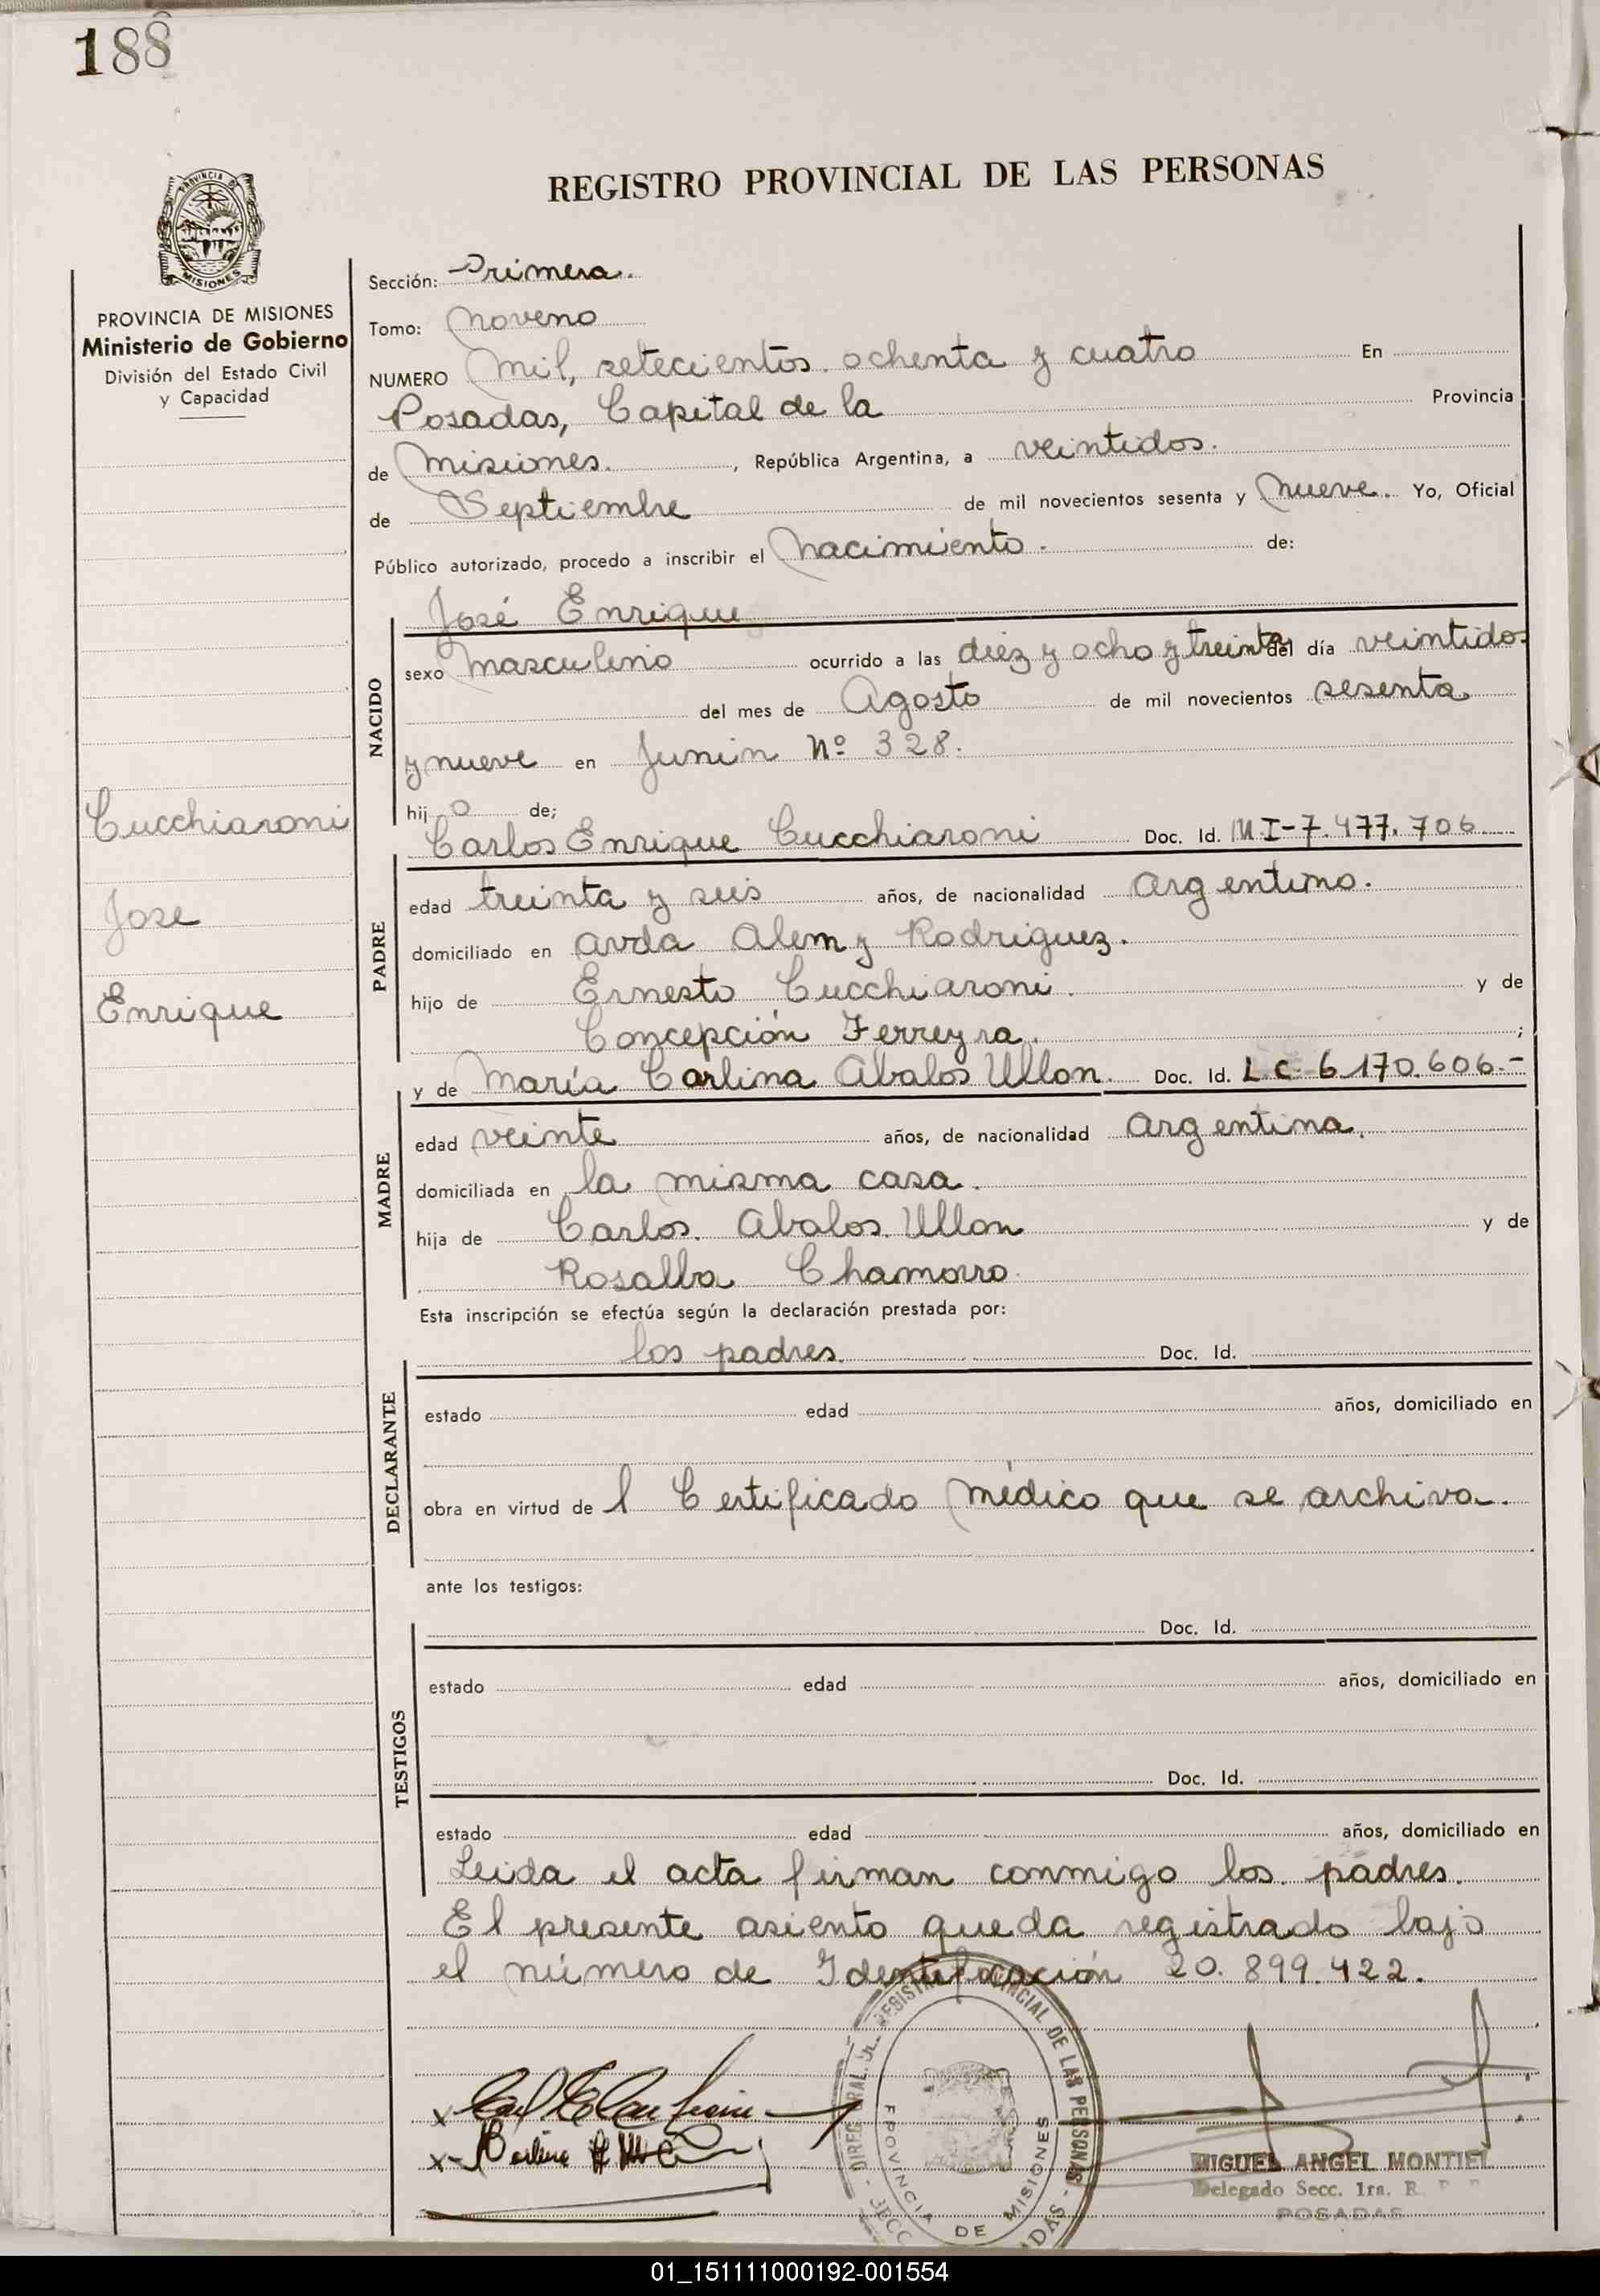 188
REGISTRO PROVINCIAL DE LAS PERSONAS
PROVINCIA DE
MISIONES
PROVINCIA DE MISIONES
Ministerio de Gobierno
División del Estado Civil
y Capacidad
Cucchiaroni
Jose
Enrique
Sección: Primera.
Tomo: Noveno
NUMERO Mil, setecientos ochenta y cuatro En
Posadas, Capital de la Provincia
de Misiones. , República Argentina, a veintidos.
de Septiembre de mil novecientos sesenta y nueve. Yo, Oficial
Público autorizado, procedo a inscribir el Nacimiento. de:
José Enrique
NACIDO
sexo masculino ocurrido a las diez y ocho y treinta del día veintidos
del mes de Agosto de mil novecientos sesenta
y nueve en Junin Nº 328.
hij o de;
Carlos Enrique Cucchiaroni Doc. Id. M.I-7.477.706
PADRE
edad treinta y seis años, de nacionalidad Argentino.
domiciliado en avda Alem y Rodriguez.
hijo de Ernesto Cucchiaroni. y de
Concepción Ferreyra. ;
y de María Carlina Abalos Ullon. Doc. Id. L.C. 6.170.606.-
MADRE
edad veinte años, de nacionalidad Argentina.
domiciliada en la misma casa.
hija de Carlos Abalos Ullon y de
Rosalba Chamorro.
Esta inscripción se efectúa según la declaración prestada por:
los padres. Doc. Id.
DECLARANTE
estado edad años, domiciliado en
obra en virtud de l Certificado médico que se archiva.
ante los testigos:
Doc. Id.
TESTIGOS
estado edad años, domiciliado en
Doc. Id.
estado edad años, domiciliado en
Leida el acta firman conmigo los padres.
El presente asiento queda registrado bajo
el número de Identificación 20.899.422.
PROVINCIA DE MISIONES
MIGUEL ANGEL MONTIEL
Delegado Secc. 1ra. R.
POSADAS
01_151111000192-001554